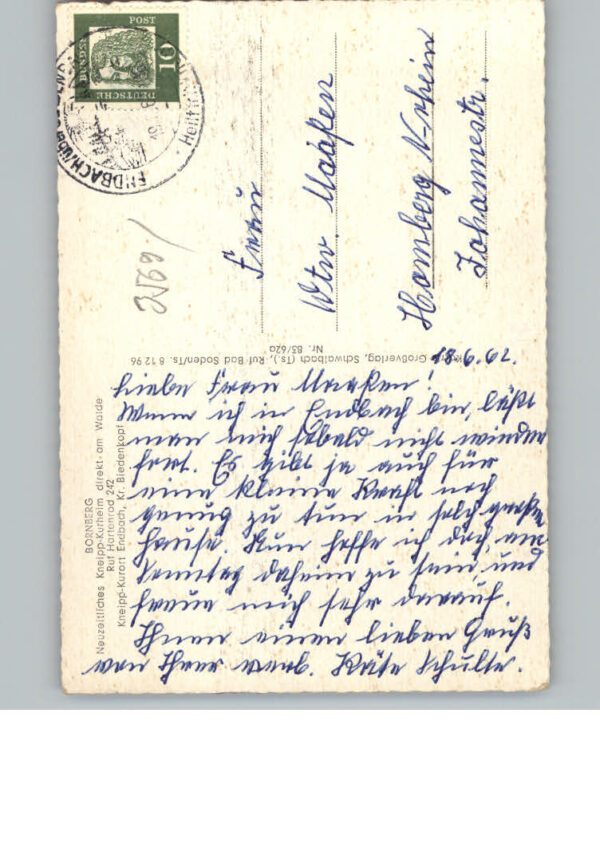 DEUTSCHE
BUNDESPOST
10
ENDBACH
Frau
Wtw. Maaßen
Homberg N-rhein
Johannestr.
3/69
Großverlag, Schwalbach (Ts.), Ruf Bad Soden/Ts. 8 12 96
Nr. 85/62a
BORNBERG
Neuzeitliches Kneipp-Kurheim direkt am Walde
Ruf Hartenrod 242
Kneipp-Kurort Endbach, Kr. Biedenkopf
18.6.62.
Liebe Frau Maaßen!
Wenn ich in Endbach bin, läßt
man mich sobald nicht wieder
fort. Es gibt ja auch für
eine kleine Kraft noch
genug zu tun in solch großem
Hause. Nun hoffe ich doch, am
Sonntag daheim zu sein, und
freue mich sehr darauf.
Ihnen einen lieben Gruß
von Ihrer verb. Käte Schulte.